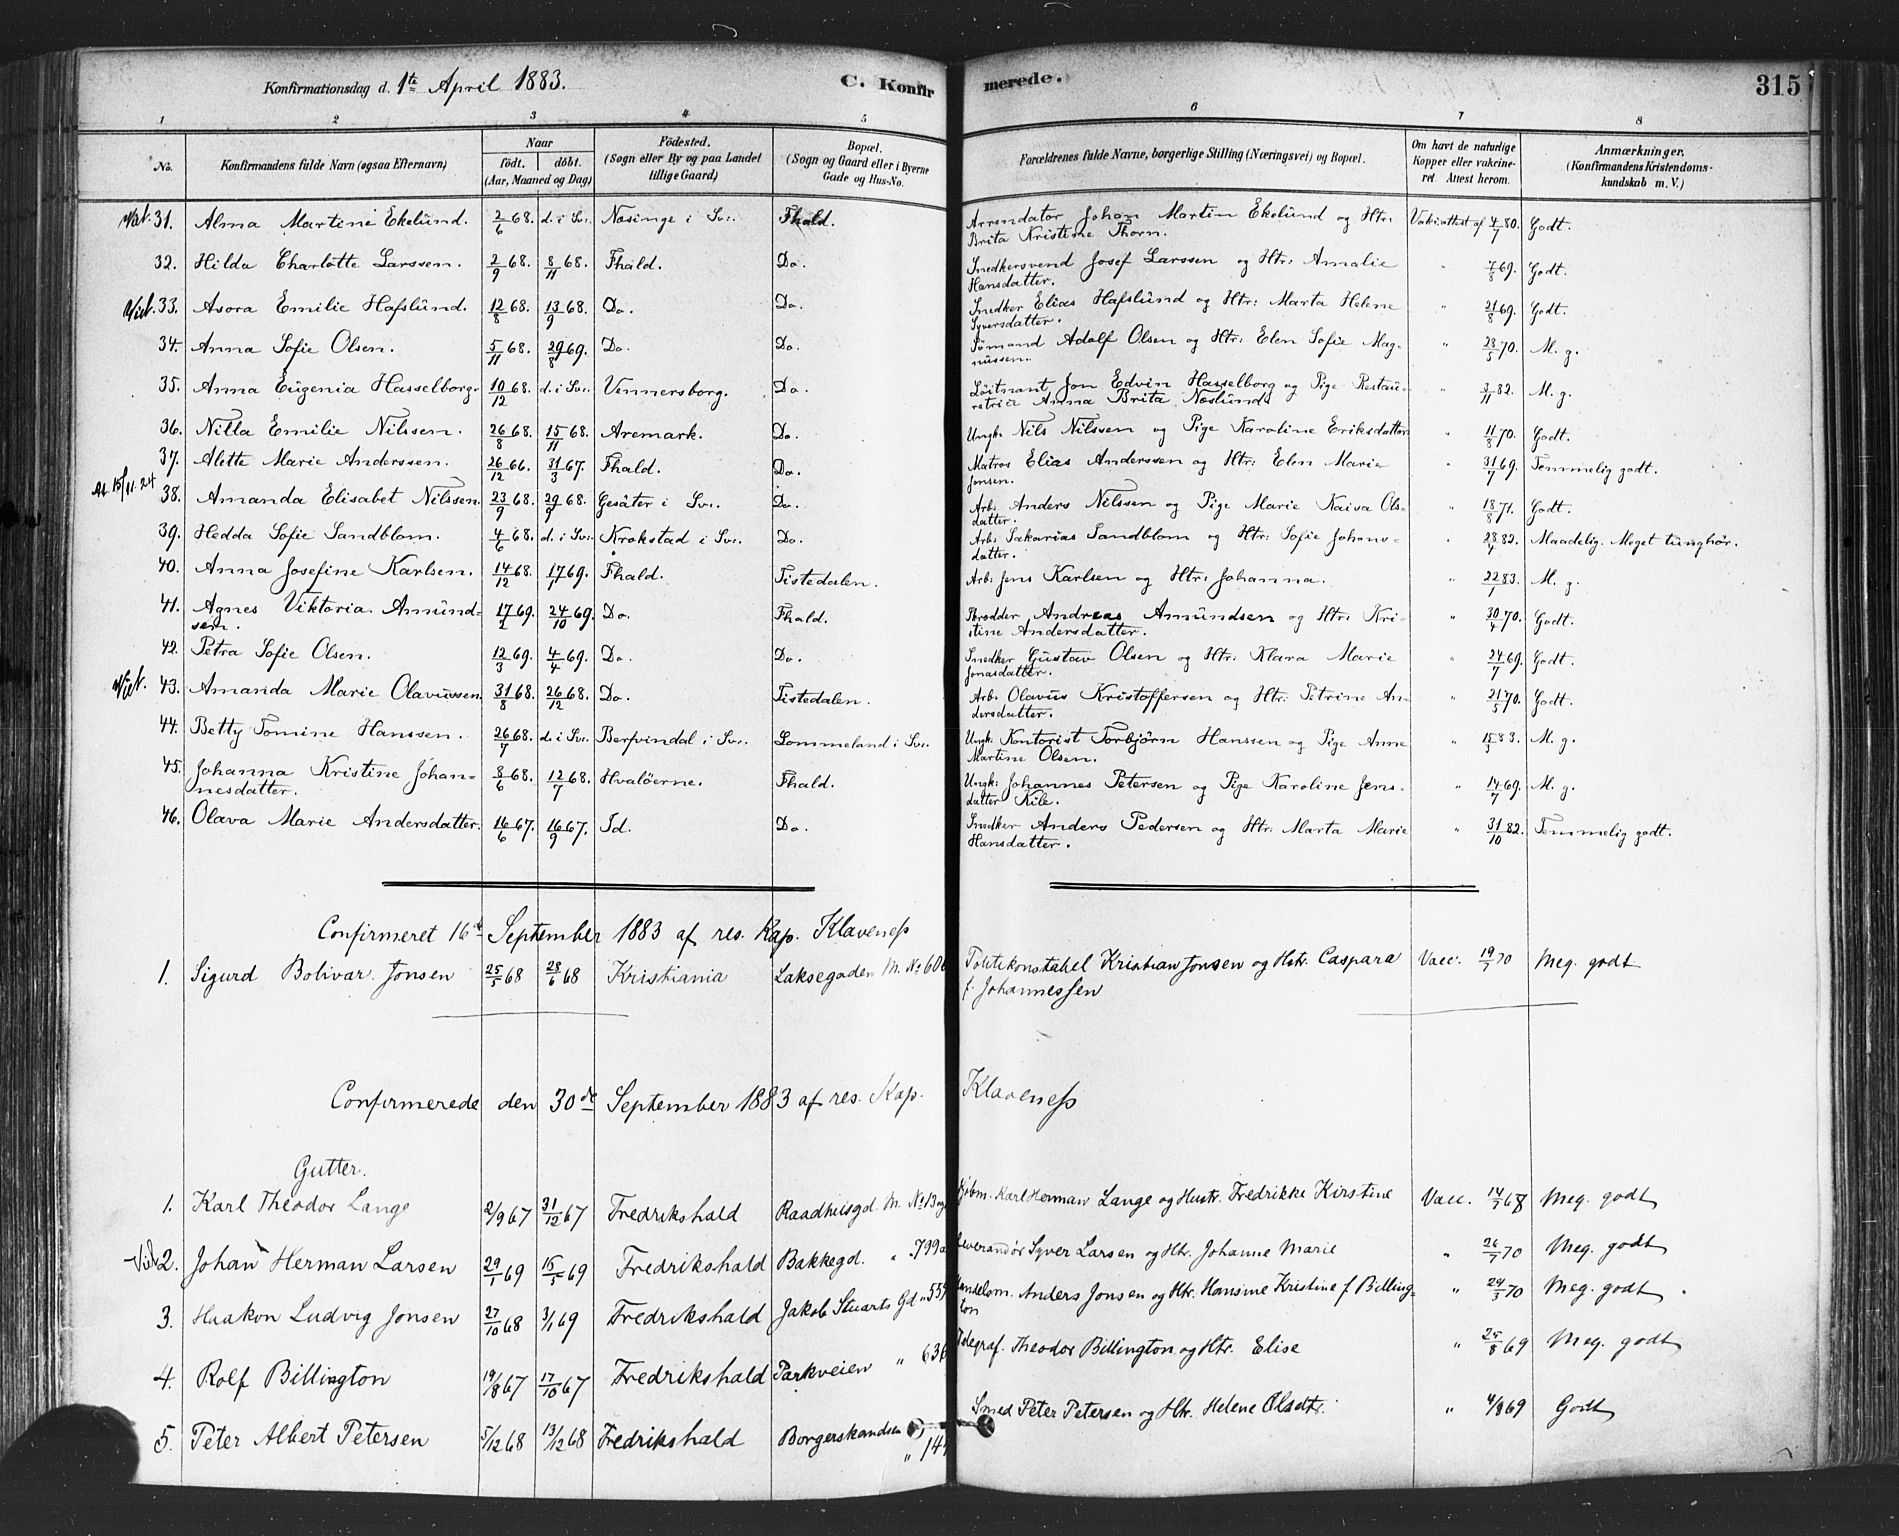 Konfirmationsdag d. 1te April 1883. C. Konfirmerede. 315
1 2 3 4 5 6 7 8
No. Konfirmandens fulde Navn (ogsaa Efternavn) Naar födt. döbt. (Aar, Maaned og Dag) Födested. (Sogn eller By og paa Landet tillige Gaard) Bopæl. (Sogn og Gaard eller i Byerne Gade og Hus-No. Forældrenes fulde Navne, borgerlige Stilling (Næringsvei) og Bopæl. Om havt de naturlige Kopper eller vakcineret. Attest herom. Anmærkninger. (Konfirmandens Kristendomskundskab m. V.)
31. Alma Martine Ekelund. 2/6 68. d. i Sv.. Næsinge i Sv.. Fhald. Arrendator Johan Martin Ekelund og Htr: Brita Kristine Thorn. Vakc.attest af 4/7 80. Godt.
32. Hilda Charlotte Larssen. 2/9 68. 8/11 68. Fhald. Do. Snedkersvend Josef Larssen og Htr: Amalie Hansdatter. " 7/8 69. Godt.
33. Asora Emilie Hafslund. 12/8 68. 13/9 68. Do. Do. Snedker Elias Hafslund og Htr: Marta Helene Syversdatter. " 21/8 69. Godt.
34. Anna Sofie Olsen. 5/11 68. 29/8 69. Do. Do. Sömand Adolf Olsen og Htr: Elen Sofie Magnussen. " 28/5 70. M. g.
35. Anna Eugenia Hasselborg. 10/12 68. d. i Sv.. Vennersborg. Do. Löitnant Jon Edvin Hasselborg og Pige Restauratrice Anna Brita Næslund. " 3/11 82. M. g.
36. Nilla Emilie Nilssen. 26/8 68. 15/11 68. Aremark. Do. Ungk. Nils Nilssen og Pige Karoline Eriksdatter " 11/8 70. Godt.
37. Alette Marie Anderssen. 26/12 66. 31/3 67. Fhald. Do. Matros Elias Anderssen og Htr: Elen Marie Jensen. " 31/7 69. Temmelig godt.
At. 15/11.24
38. Amanda Elisabet Nilssen. 23/9 68. 29/9 68. Gesäter i Sv.. Do. Arb: Anders Nilssen og Pige Marie Kaisa Olsdatter. " 18/8 71. Godt.
39. Hedda Sofie Sandblom. 4/6 68. d. i Sv.. Krokstad i Sv.. Do. Arb: Sakarias Sandblom og Htr: Sofie Johansdatter. " 28/4 82. Maadelig. Meget tunghör.
40. Anna Josefine Karlsen. 14/12 68. 17/1 69. Fhald. Tistedalen. Arb: Jens Karlsen og Htr: Johanna. " 22/1 83. M. g.
41. Agnes Viktoria Amundsen. 17/2 69. 24/10 69. Do. Fhald. Skrædder Andreas Amundsen og Htr: Kristine Andersdatter. " 30/4 70. Godt.
42. Petra Sofie Olsen. 12/3 69. 4/4 69. Do. Do. Snedker Gustav Olsen og Htr: Klara Marie Jonasdatter. " 24/7 69. Godt.
43. Amanda Marie Olavussen. 31/8 68. 26/12 68. Do. Tistedalen. Arb: Olavus Kristoffersen og Htr: Petrine Andersdatter. " 21/5 70. Godt.
44. Betty Tomine Hanssen. 26/7 68. d. i Sv.. Berfvindal i Sv.. Lommeland i Sv.. Ungk: Kontorist Torbjörn Hanssen og Pige Anne Martine Olsen. " 15/3 83. M. g.
45. Johanna Kristine Johannesdatter. 8/6 68. 12/7 68. Hvalöerne. Fhald. Ungk: Johannes Petersen og Pige Karoline Jensdatter Kile. " 14/7 69. M. g.
46. Olava Marie Andersdatter. 16/6 67. 16/9 67. Id. Do. Snedker Anders Pedersen og Htr: Marta Marie Hansdatter. " 31/10 82. Temmelig godt.
Confirmeret 16de September 1883 af res. Kap. Klaveness
1. Sigurd Bolivar Jonsen 25/5 68 28/6 68 Kristiania Laksegaden M. No 606 Politikonstabel Kristian Jonsen og Hstr. Caspara f. Johannessen Vacc. 19/7 70 Meg. godt
Confirmerede den 30de September 1883 af res. Kap. Klaveness
Gutter.
1. Karl Theodor Lange 2/9 67 31/12 67 Fredrikshald Raadhusgd. M. No 13 Kjöbm. Karl Herman Lange og Hustr. Fredrikke Kirstine Vacc. 14/7 68 Meg. godt
2. Johan Herman Larsen 29/1 69 15/5 69 Fredrikshald Bakkegd. " 799a Leverandör Syver Larsen og Htr. Johanne Marie " 26/7 70 Meg. godt
3. Haakon Ludvig Jonsen 27/10 68 3/1 69 Fredrikshald Jakob Stuarts Gd " 559 Handelsm. Anders Jonsen og Htr. Hansine Kristine f. Billington " 24/3 70 Meg. godt
4. Rolf Billington 19/8 67 17/10 67 Fredrikshald Parkveien " 636 Telegraf. Theodor Billington og Htr. Elise " 25/8 69 Meg. godt
5. Peter Albert Petersen 5/12 68 13/12 68 Fredrikshald Borgerskandsen " 144 Smed Peter Petersen og Htr. Helene Olsdtr. " 4/8 69 Godt